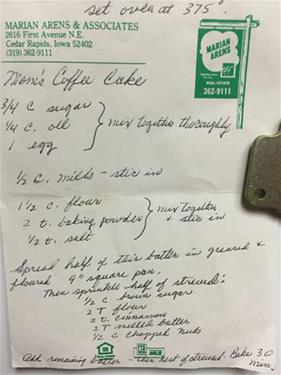 set oven at 375°.
MARIAN ARENS & ASSOCIATES
2616 First Avenue N.E.
Cedar Rapids, Iowa 52402
(319) 362-9111
MARIAN
ARENS
REAL ESTATE
362-9111
Mom's Coffee Cake
3/4 c sugar
1/4 c. oil
1 egg
mix together thoroughly
1/2 c. milk - stir in
1 1/2 c. flour
2 t. baking powder
1/2 t. salt
mix together
& stir in
Spread half of this batter in greased &
floured 9" square pan.
Then sprinkle half of streusel:
1/2 c brown sugar
2 T flour
2 t. cinnamon
2 T melted butter
1/2 c chopped nuts
Add remaining batter - then rest of streusel. Bake 30
min.